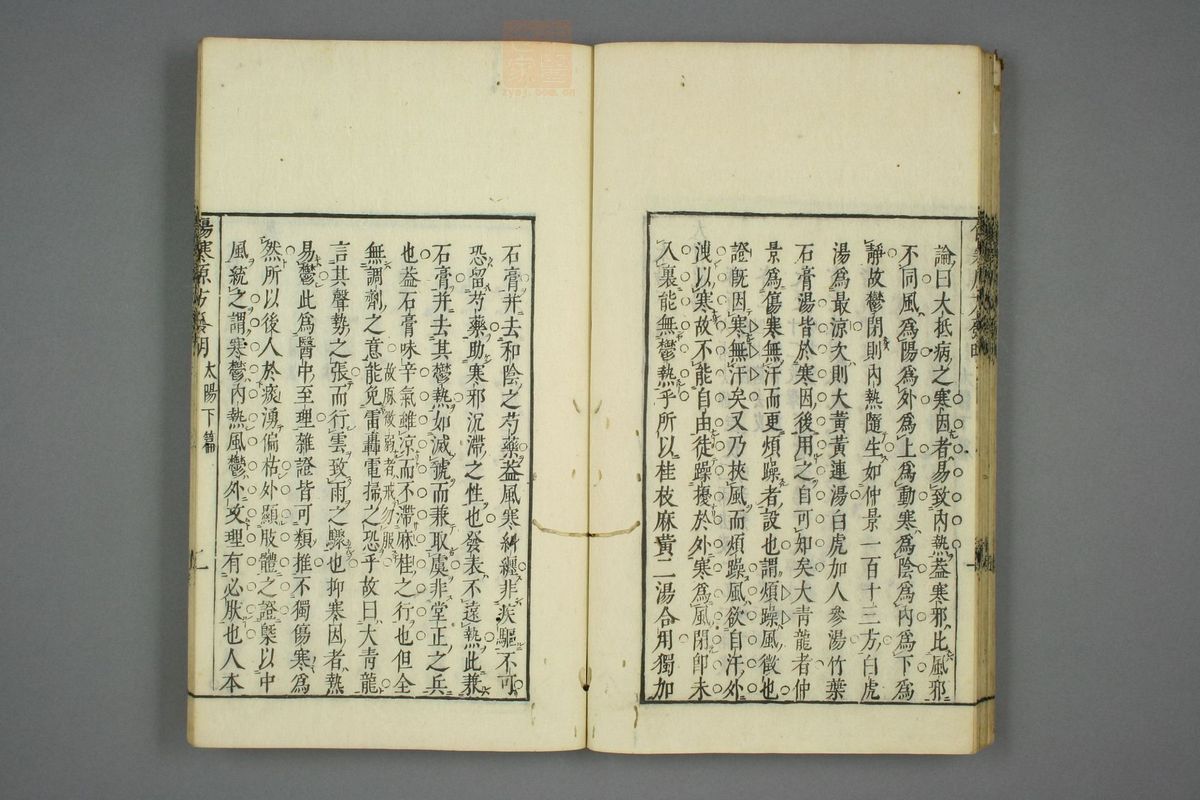 論曰大抵病之寒因者易致內熱葢寒邪比風邪
不同風爲陽爲外爲上爲動寒爲陰爲內爲下爲
靜故鬱閉則內熱隨生如仲景一百十三方白虎
湯爲最涼次則大黃黃連湯白虎加人參湯竹葉
石膏湯皆於寒因後用之自可知矣大青龍者仲
景爲傷寒無汗而更煩躁者設也謂煩躁風徵也
證既因寒無汗矣又乃挾風而煩躁風欲自汗外
洩以寒故不能自由徒躁擾於外寒爲風閉卽未
入裏能無鬱熱乎所以桂枝麻黃二湯合用獨加
石膏幷去和陰之芍藥葢風寒糾纏非疾驅不可
恐留芍藥助寒邪沉滯之性也發表不遠熱此兼
石膏幷去其鬱熱如滅虢而兼取虞非堂正之兵
也葢石膏味辛氣雖涼而不滯麻桂之行也但全
無調劑之意故脈微弱者戒勿服能免雷轟電掃之恐乎故曰大青龍
言其聲勢之張而行雲致雨之驟也抑寒因者熱
易鬱此爲醫中至理雜證皆可類推不獨傷寒爲
然所以後人於痰湧偏枯外顯肢體之證槩以中
風統之謂寒鬱內熱風鬱外文理有必肰也人本
傷寒原方 明 太陽下篇